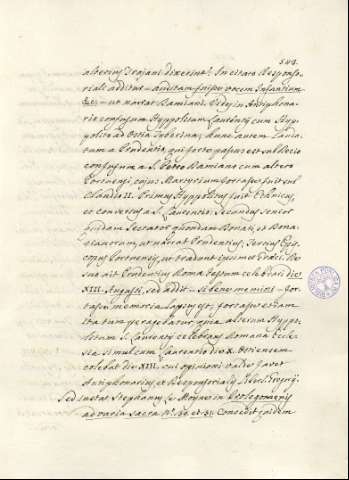 543.
alterius Trajani dixerint. In citato Responso-
riali additur – auditam fuisse vocem Infantium
&c. – ut notat Damiani. Sed in Antiphona-
rio confusum Hyppolitum Laurentii cum Hyp-
polito ad Ostia Tiberina; hunc autem Lauda-
tum a Prudentio, qui forte passus est sub Decio
confusum a S. Petro Damiano cum altero
Portuensi, cujus Martyrium fortasse fuit sub
Claudio II. Primus Hyppolitus fuit Ethnicus,
et conversus a S. Laurentio: Secundus Senior
quidam Sectator quondam Donati, et Nova-
tianorum, ut narat Prudentius; Tertius Epis-
copus Portuensis, ut tradunt ipsimet Græci. De
suo ait Prudentius Romæ festum celebrari die
XIII. Augusti, sed addit – si bene memini – for-
tasse memoria lapsus est; fortasse etiam
ita tum peragebatur, quia alterum Hyppo-
litum S. Laurentii celebrans Romana Eccle-
sia simul cum Laurentio die X. Ostiensem
colebat die XIII. cui opinioni valde favet
Antiphonarius, et Responsorialis Liber Gregorii.
Sed instat Stephanus le Moyne in Prolegomenis
ad varia sacra N.° 30 et 31. Concedit quidem